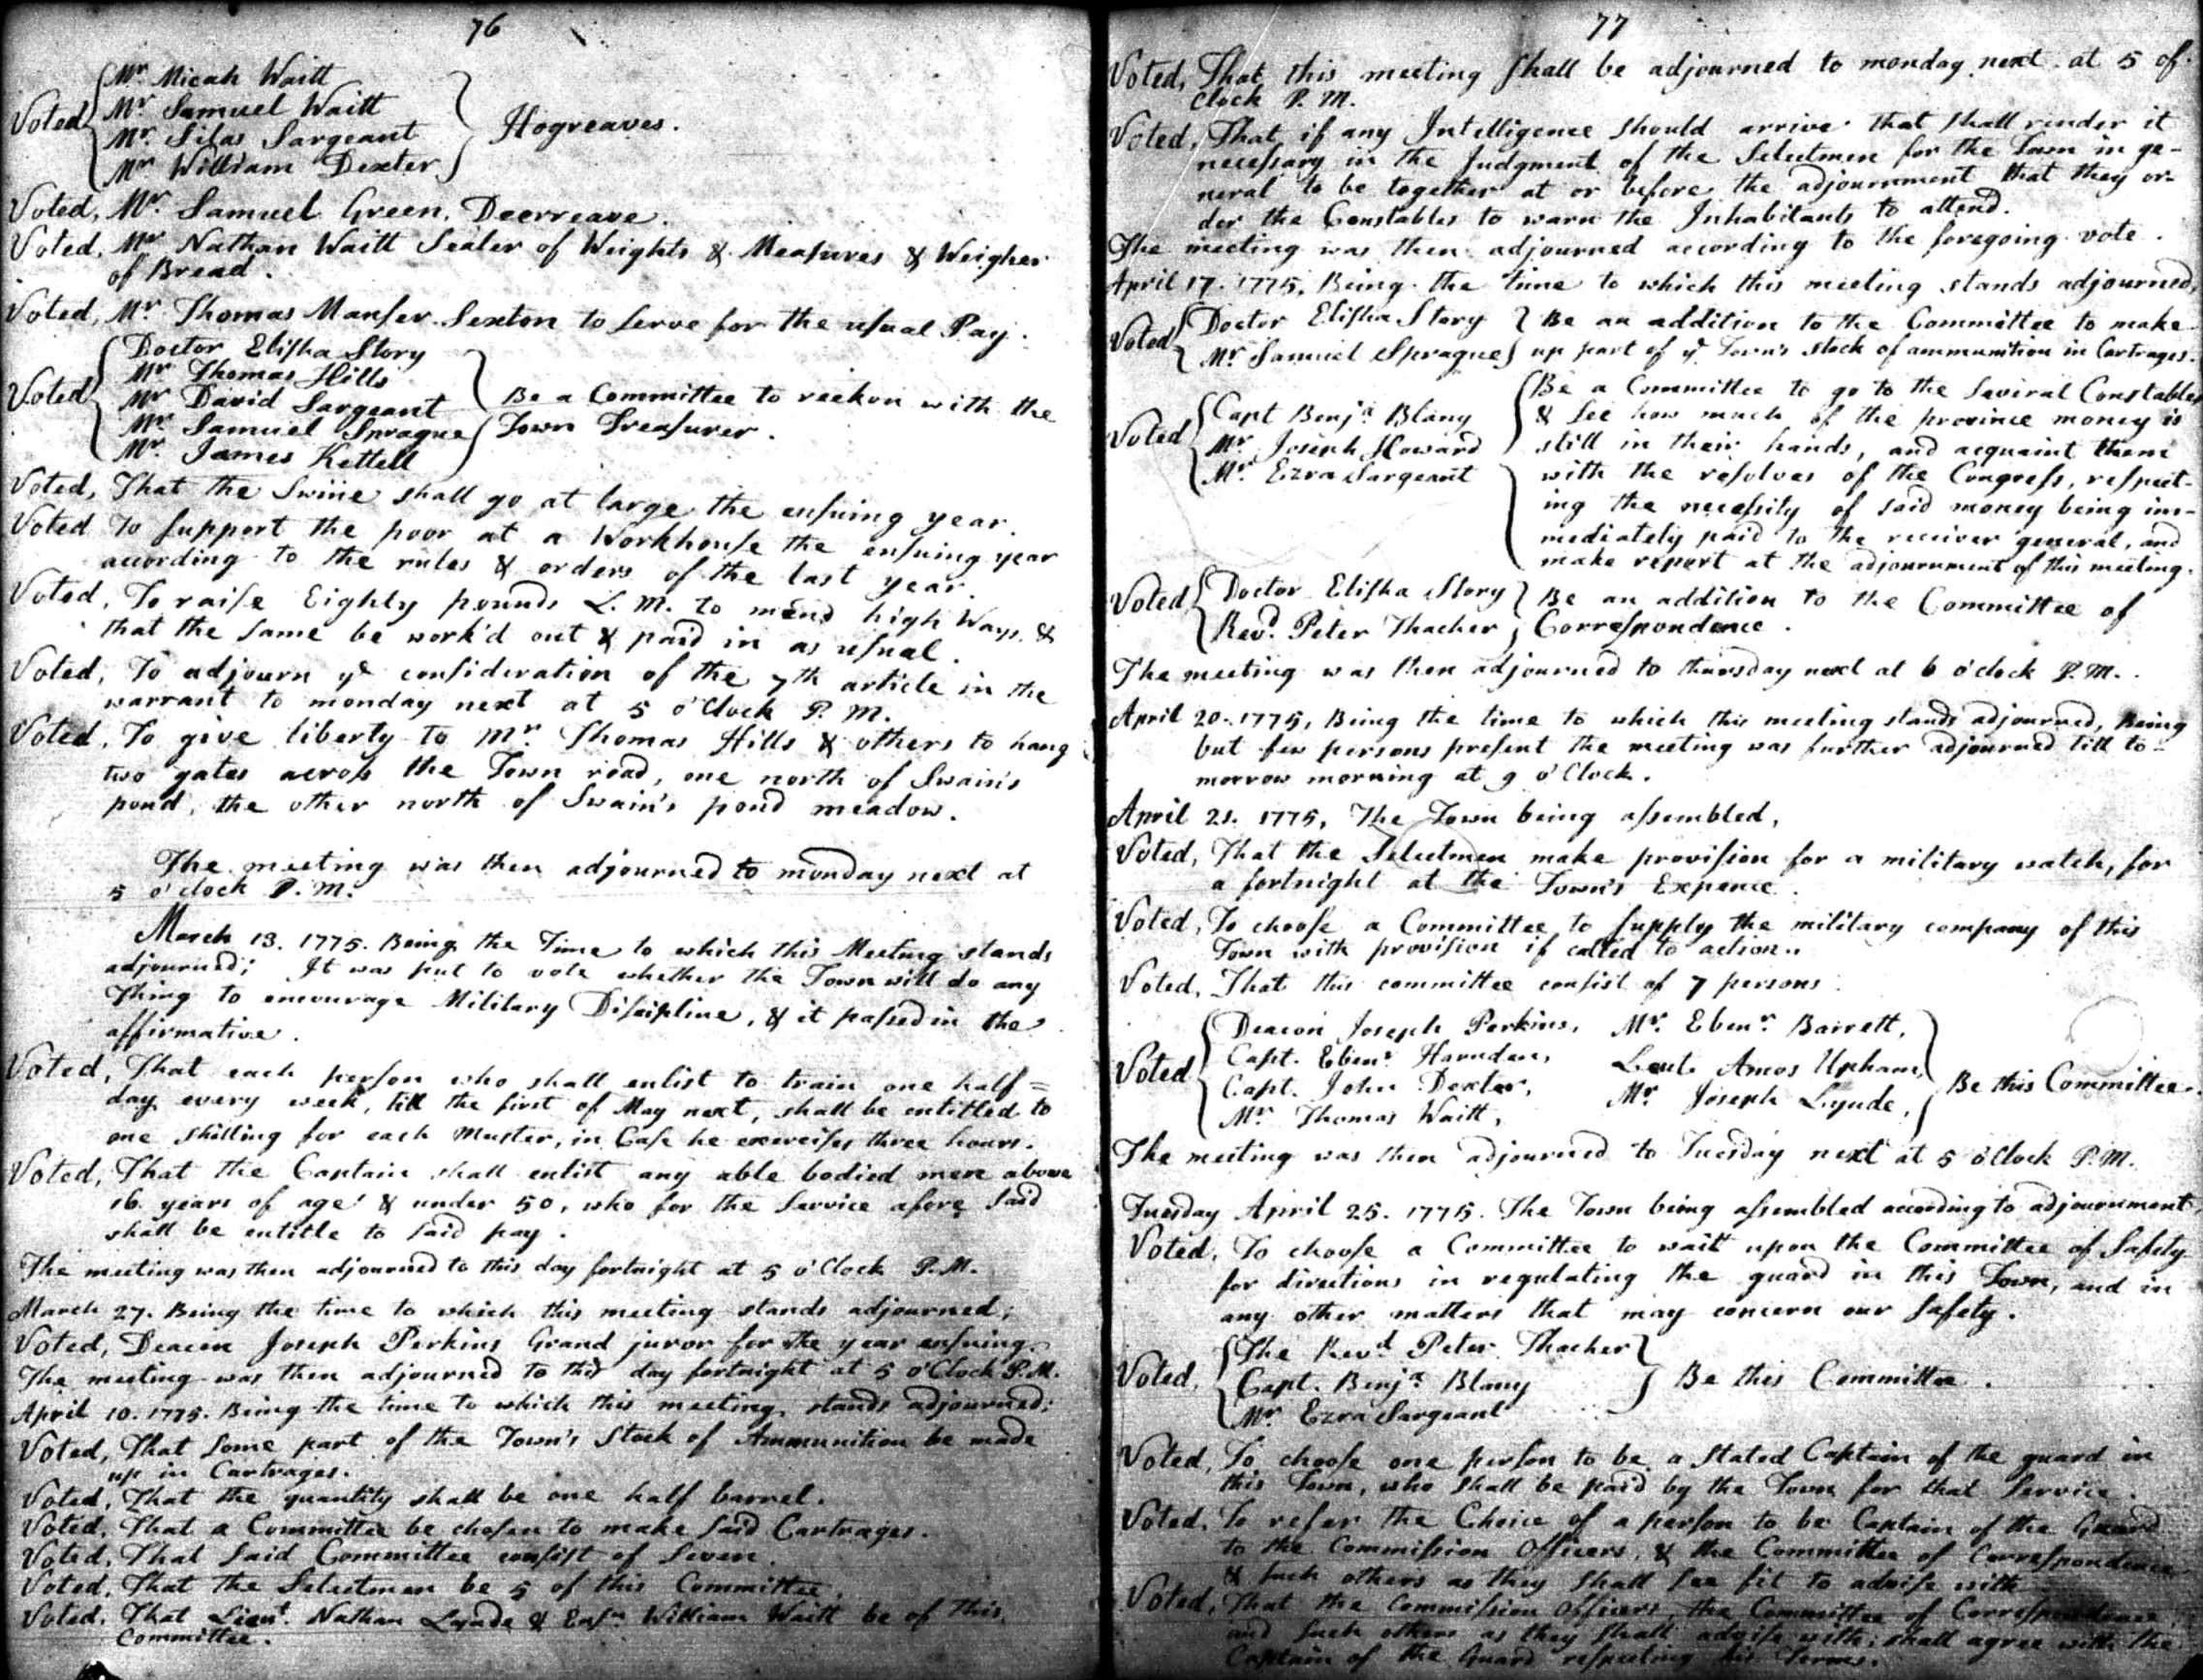 76
Mr. Micah Waitt
Mr. Samuel Waitt
Voted Mr. Silas Sargeant Hogreaves.
Mr. William Dexter
Voted, Mr. Samuel Green, Deerreave.
Voted, Mr. Nathan Waitt Sealer of Weights & Measures & Weigher
of Bread.
Voted, Mr. Thomas Manser Sexton to serve for the usual Pay.
Doctor Elisha Story
Mr. Thomas Hills
Voted Mr David Sargeant Be a Committee to reckon with the
Mr. Samuel Sprague Town Treasurer.
Mr. James Kettell
Voted, That the Swine shall go at large the ensuing year.
Voted To support the poor at a Workhouse the ensuing year
according to the rules & orders of the last year.
Voted, To raise Eighty pounds L. M. to mend high Ways, &
that the same be work'd out & paid in as usual.
Voted, To adjourn ye consideration of the 7th article in the
warrant to monday next at 5 o'Clock P. M.
Voted, To give liberty to Mr. Thomas Hills & others to hang
two gates across the Town road, one north of Swain's
pond, the other north of Swain's pond meadow.
The meeting was then adjourned to monday next at
5 o'clock P. M.
March 13. 1775. Being the Time to which this Meeting stands
adjourned; It was put to vote whether the Town will do any
Thing to encourage Military Discipline, & it passed in the
affirmative.
Voted, That each person who shall enlist to train one half=
day every week, till the first of May next, shall be entitled to
one shilling for each Muster, in Case he exercises three hours.
Voted, That the Captain shall enlist any able bodied men above
16 years of age & under 50, who for the Service afore said
shall be entitle to said pay.
The meeting was then adjourned to this day fortnight at 5 o'Clock P.M.
March 27. Being the time to which this meeting stands adjourned;
Voted, Deacon Joseph Perkins Grand juror for the year ensuing.
The meeting was then adjourned to this day fortnight at 5 o'Clock P.M.
April 10. 1775. Being the time to which this meeting stands adjourned;
Voted, That some part of the Town's Stock of Ammunition be made
up in Cartrages.
Voted, That the quantity shall be one half barrel.
Voted, That a Committee be chosen to make said Cartrages.
Voted, That said Committee consist of Seven.
Voted, That the Selectmen be 5 of this Committee.
Voted, That Lieut. Nathan Lynde & Ensn William Waitt be of this
Committee.
77
Voted, That this meeting shall be adjourned to monday next at 5 of
Clock P. M.
Voted, That if any Intelligence should arrive that shall render it
necessary in the Judgment of the Selectmen for the Town in ge-
neral to be together at or before the adjournment that they or-
der the Constables to warn the Inhabitants to attend.
The meeting was then adjourned according to the foregoing vote.
April 17. 1775, Being the time to which this meeting stands adjourned,
Voted Doctor Elisha Story Be an addition to the Committee to make
Mr. Samuel Sprague up part of ye Town's stock of ammunition in Cartrages.
Be a Committee to go to the Several Constables
Capt Benja Blany & see how much of the province money is
Voted Mr. Joseph Howard still in their hands, and acquaint them
Mr. Ezra Sargeant with the resolves of the Congress, respect-
ing the necessity of said money being im-
mediately paid to the receiver general, and
make report at the adjournment of this meeting.
Voted Doctor Elisha Story Be an addition to the Committee of
Revd. Peter Thacher Correspondence.
The meeting was then adjourned to thursday next at 6 o'clock P. M.
April 20. 1775, Being the time to which this meeting stands adjourned, Being
but few persons present the meeting was further adjourned till to-
morrow morning at 9 o'Clock.
April 21. 1775, The Town being assembled,
Voted, That the Selectmen make provision for a military watch, for
a fortnight at the Town's Expence.
Voted, To choose a Committee to supply the military company of this
Town with provision if called to action.
Voted, That this committee consist of 7 persons.
Deacon Joseph Perkins, Mr. Ebenr. Barrett,
Voted Capt. Ebenr Harnden, Leut. Amos Upham,
Capt. John Dexter, Mr. Joseph Lynde, Be this Committee.
Mr. Thomas Waitt,
The meeting was then adjourned to Tuesday next at 5 o'Clock P.M.
Tuesday April 25. 1775. The Town being assembled according to adjournment,
Voted, To choose a Committee to wait upon the Committee of Safety
for directions in regulating the guard in this Town, and in
any other matters that may concern our safety.
The Revd Peter Thacher
Voted, Capt. Benja Blany Be this Committee.
Mr. Ezra Sargeant
Voted, To choose one person to be a Stated Captain of the guard in
this Town, who shall be paid by the Town for that Service.
Voted, To refer the Choice of a person to be Captain of the Guard
to the Commission Officers, & the Committee of Correspondence
& such others as they shall see fit to advise with.
Voted, That the Commission Officers, the Committee of Correspondence,
and such others as they shall advise with, shall agree with the
Captain of the Guard respecting his Terms.